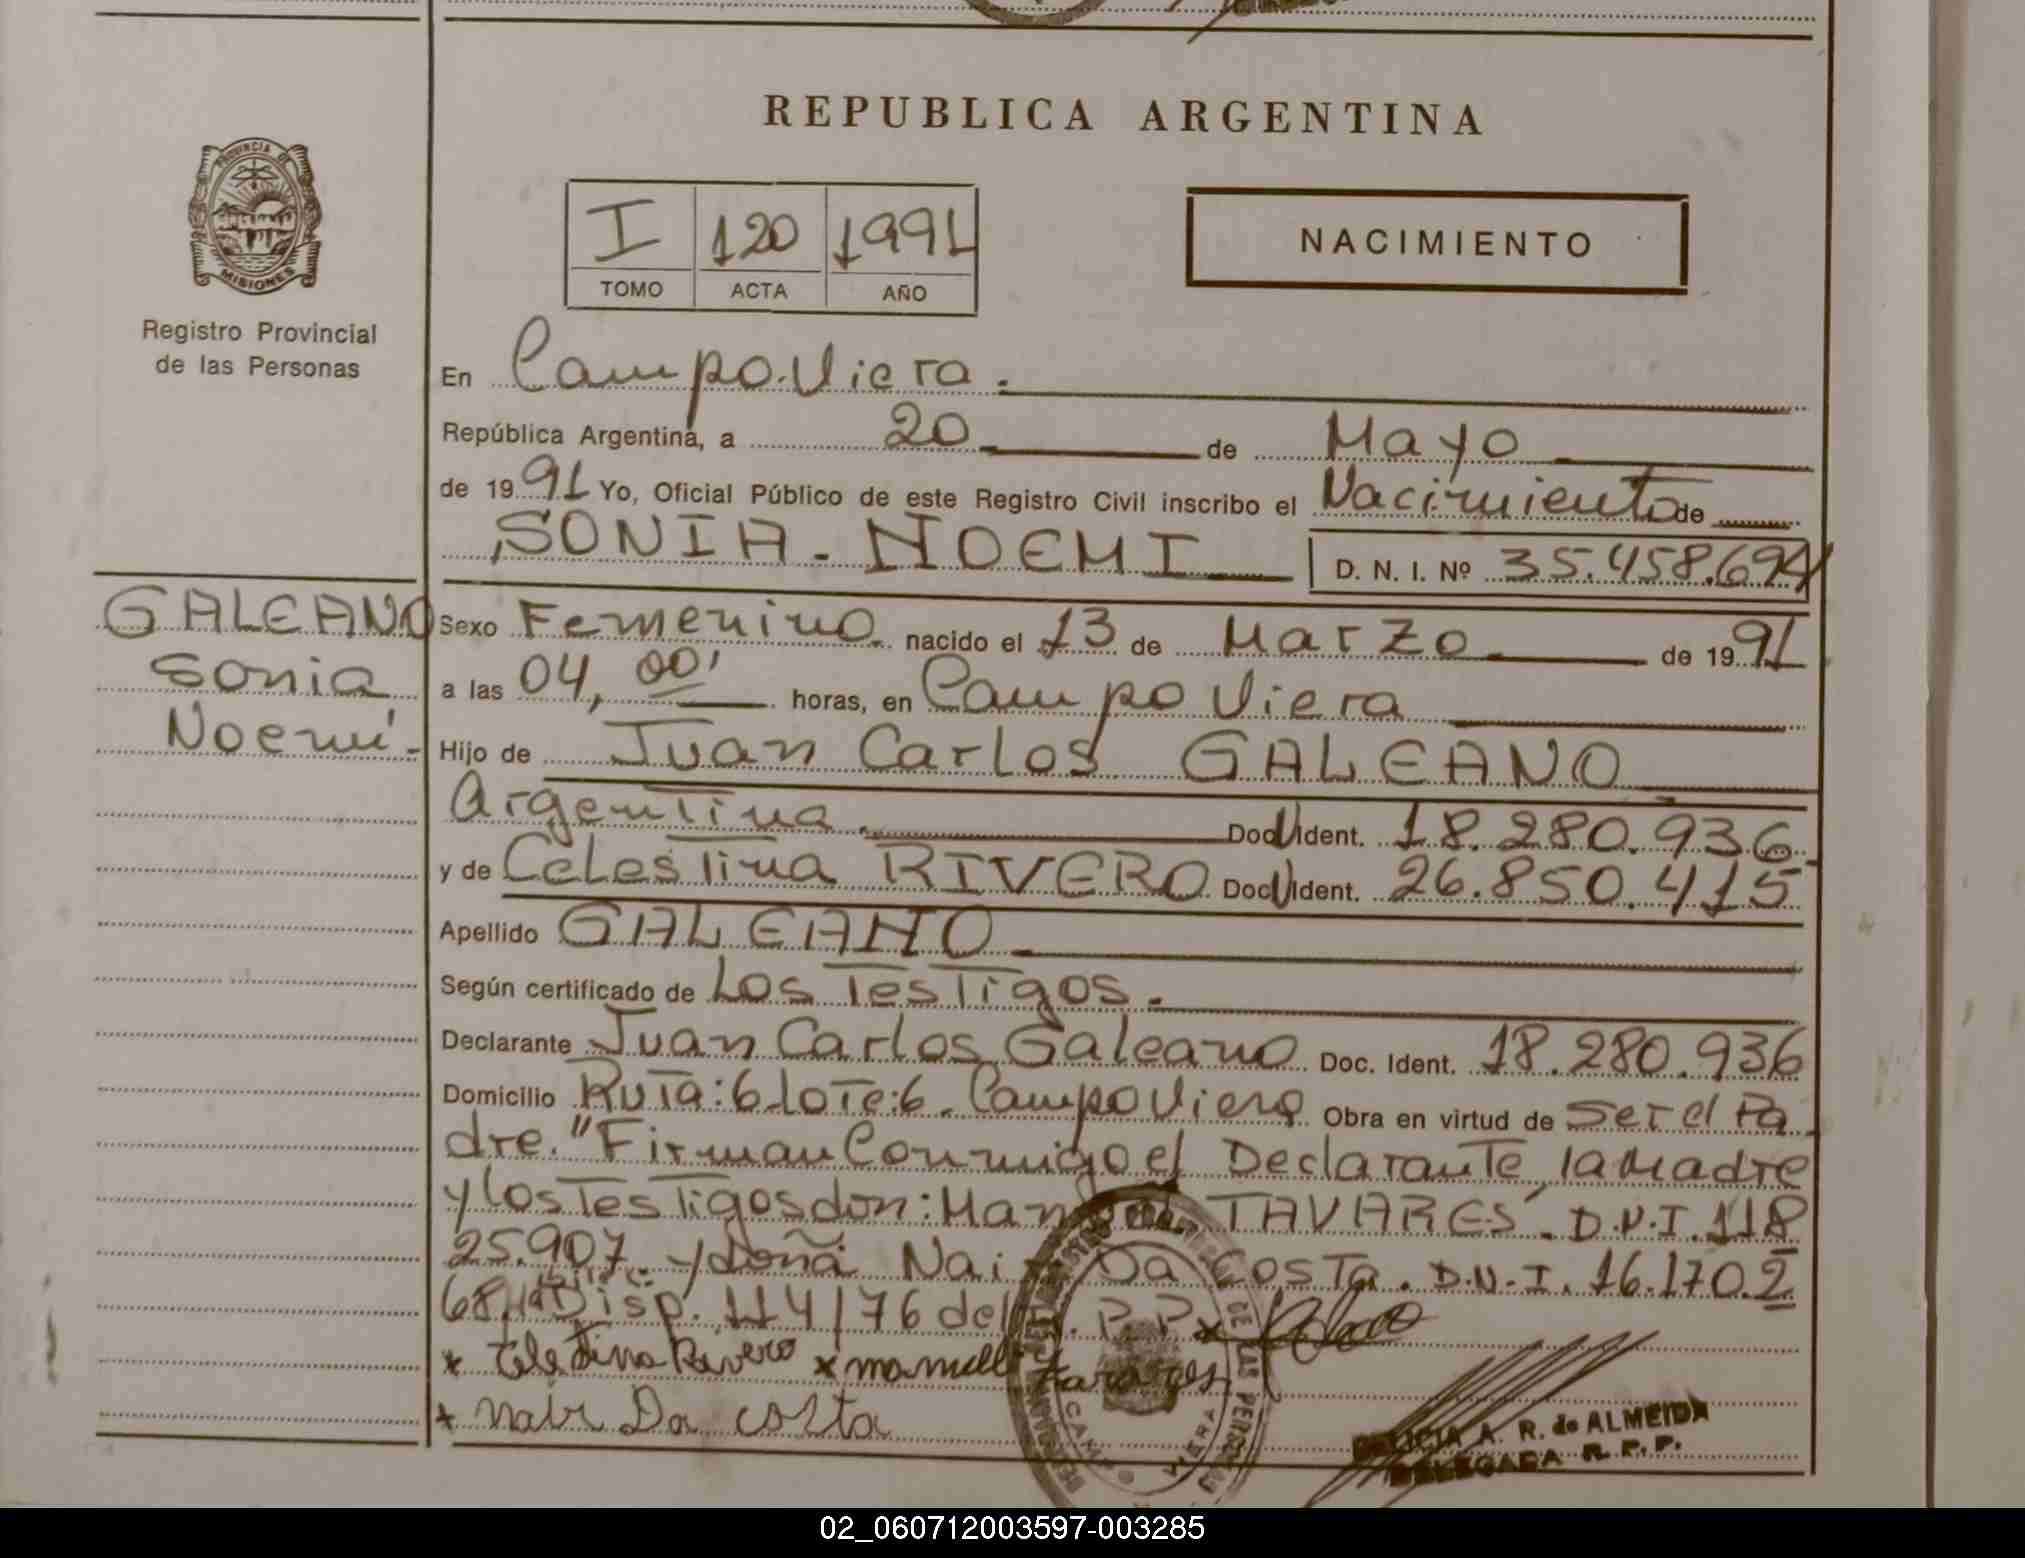 REPUBLICA ARGENTINA
PROVINCIA DE
MISIONES
Registro Provincial
de las Personas
I 120 1991
TOMO ACTA AÑO
NACIMIENTO
En Campo Viera.
República Argentina, a 20 de Mayo
de 1991 Yo, Oficial Público de este Registro Civil inscribo el Nacimiento de
SONIA-NOEMI D. N. I. Nº 35.458.694
GALEANO
Sonia
Noemí.-
Sexo Femenino. nacido el 13 de Marzo de 1991
a las 04,00' horas, en Campo Viera
Hijo de Juan Carlos GALEANO
Argentina. Doc. Ident. 18.280.936
y de Celestina RIVERO Doc. Ident. 26.850.415
Apellido GALEANO
Según certificado de Los Testigos.
Declarante Juan Carlos Galeano Doc. Ident. 18.280.936
Domicilio Ruta:6 Lote:6. Campo Viera Obra en virtud de Ser el Pa
dre." Firman Conmigo el Declarante, la Madre
y los Testigos don: Manuel TAVARES. D.N.I. 118
25.907. y doña Nair Da Costa. D.N.I. 16.170.2
68. Disp. 114/76 del R.P.P.
x Celestina Rivero x manuell tavares
x nair Da costa
DELICIA A. R. de ALMEIDA
DELEGADA R. P. P.
02_060712003597-003285